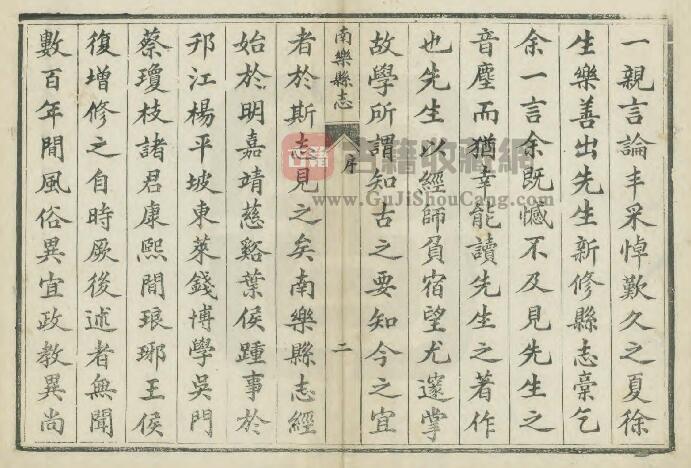 一親言論丰采悼歎久之夏徐
生樂善出先生新修縣志稾乞
余一言余既憾不及見先生之
音塵而猶幸能讀先生之著作
也先生以經師負宿望尤邃掌
故學所謂知古之要知今之宜
南樂縣志
序
二
者於斯志見之矣南樂縣志經
始於明嘉靖慈谿葉侯踵事於
邗江楊平坡東萊錢博學吳門
蔡瓊枝諸君康熙間琅琊王侯
復增修之自時厥後述者無聞
數百年間風俗異宜政教異尚
古籍
古籍收藏網
www.GuJiShouCang.com